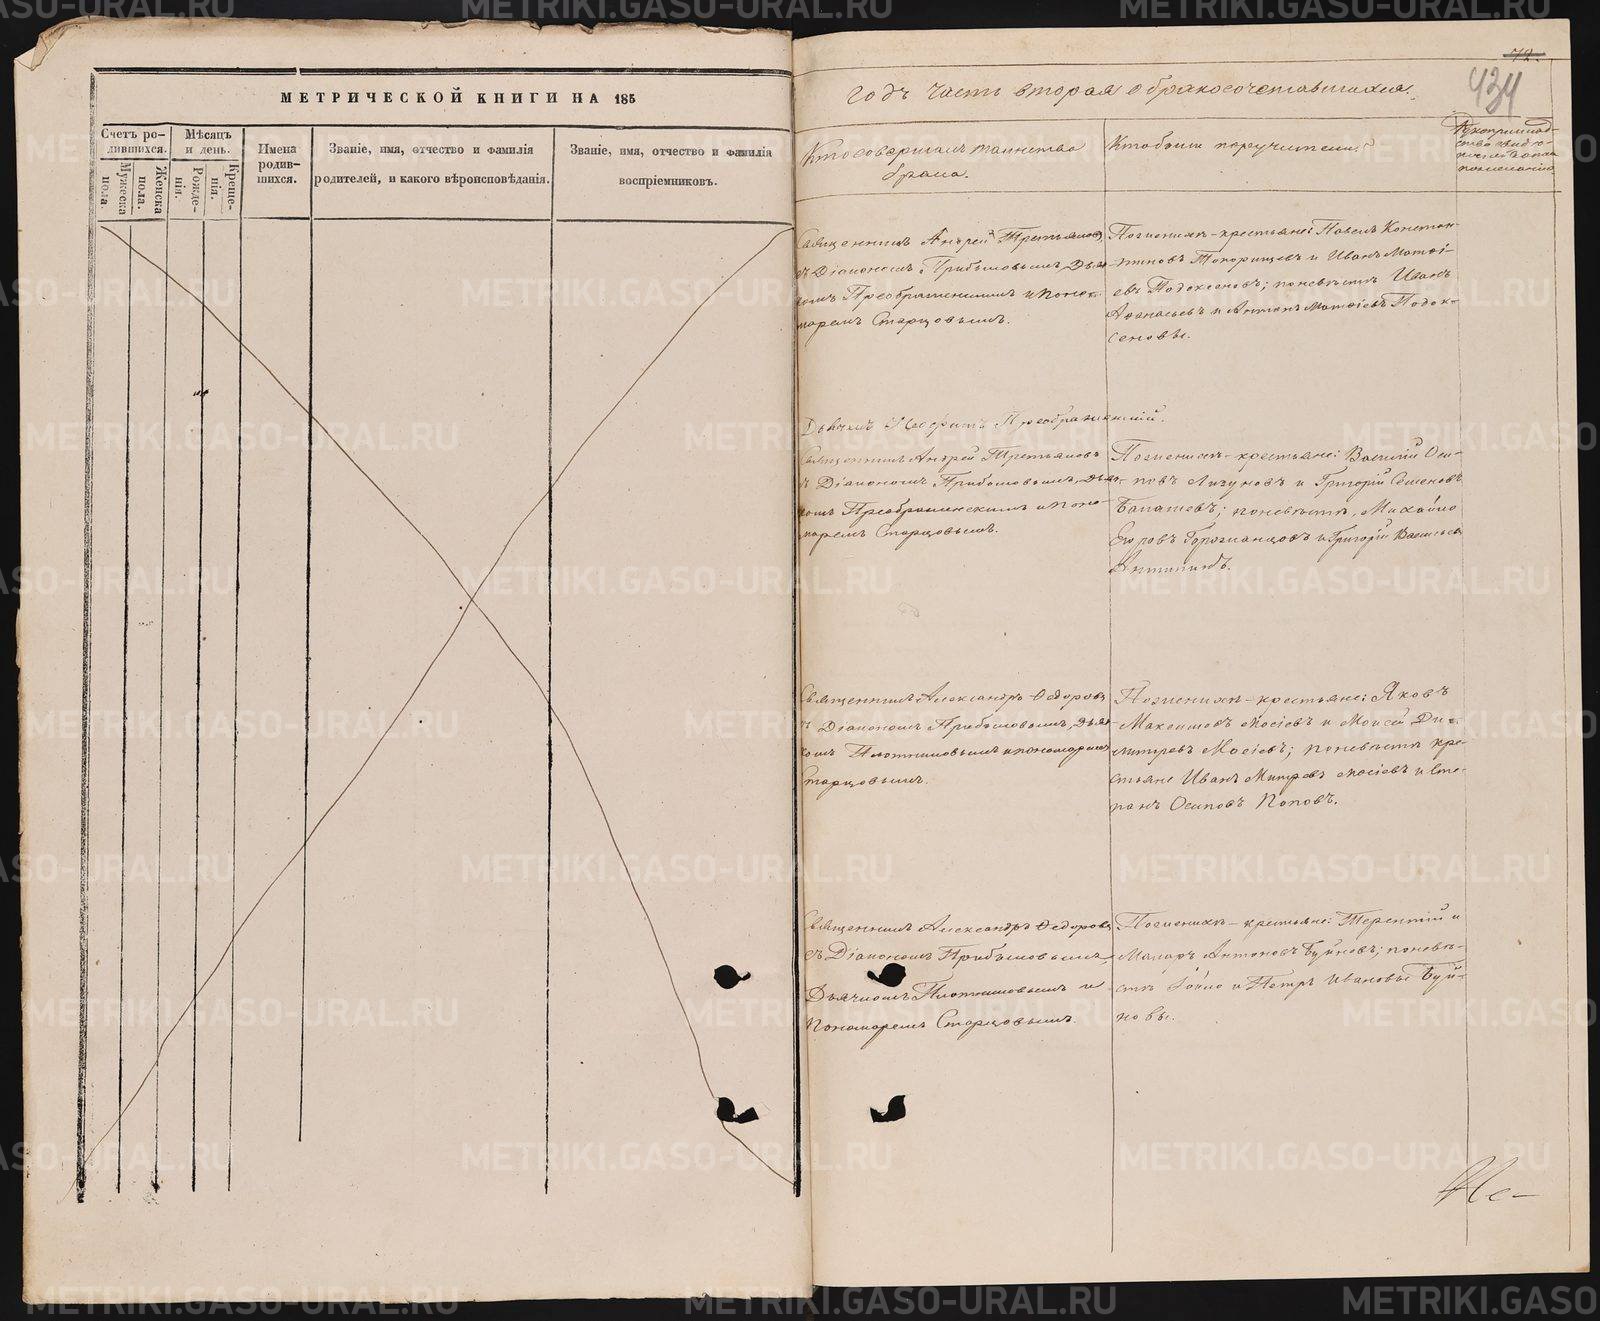 МЕТРИЧЕСКОЙ КНИГИ НА 185
Счетъ ро-
дившихся.
Мѣсяцъ
и день.
Мужеска
пола.
Женска
пола.
Рожде-
нія.
Креще-
нія.
Имена
родив-
шихся.
Званіе, имя, отчество и фамилія
родителей, и какого вѣроисповѣданія.
Званіе, имя, отчество и фамилія
воспріемниковъ.
72.
434
годъ часть вторая о бракосочетавшихся.
Кто совершалъ таинство
брака.
Кто были поручители.
Священникъ Андрей Третьяковъ
съ Діакономъ Прибыловымъ, Дьяч-
комъ Преображенскимъ и Поно-
маремъ Старцовымъ.
По женихѣ - крестьяне: Павелъ Констан-
тиновъ Топорищевъ и Иванъ Матѳі-
евъ Подоксеновъ; по невѣстѣ Иванъ
Аѳанасьевъ и Антонъ Матѳіевъ Подок-
сеновы.
Дьячекъ Неофитъ Преображенскій.
Священникъ Андрей Третьяковъ
съ Діакономъ Прибыловымъ, Дьяч-
комъ Преображенскимъ и Поно-
маремъ Старцовымъ.
По женихѣ - крестьяне: Василій Оси-
повъ Лигуновъ и Григорій Семеновъ
по невѣстѣ, Михайло
Егоровъ и Григорій Васильевъ
Антипинъ.
Священникъ Александръ Ѳедоровъ
съ Діакономъ Прибыловымъ, Дьяч-
комъ Плотниковымъ и пономаремъ
Старцовымъ.
По женихѣ - крестьяне: Яковъ
Максимовъ Мосіевъ и Моисей Ди-
митревъ Мосіевъ; по невѣстѣ кре-
стьяне Иванъ Митревъ Мосіевъ и Сте-
панъ Осиповъ Поповъ.
Священникъ Александръ Ѳедоровъ
съ Діакономъ Прибыловымъ,
Дьячкомъ Плотниковымъ и
Пономаремъ Старцовымъ.
По женихѣ - крестьяне: Терентій и
Макаръ Антоновы Буйновы; по невѣ-
стѣ и Петръ Ивановы Буй-
новы.
METRIKI.GASO-URAL.RU